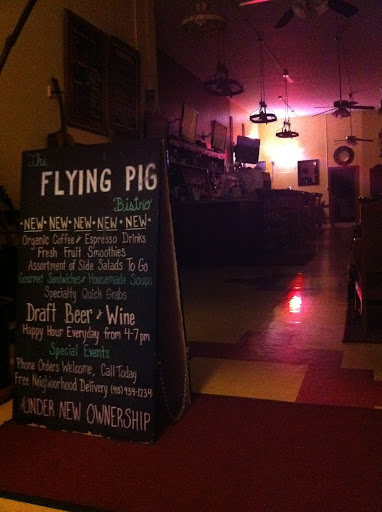 The
FLYING PIG
Bistro
NEW • NEW • NEW • NEW • NEW
Organic Coffee & Espresso Drinks
Fresh Fruit Smoothies
Assortment of Side Salads To Go
Gourmet Sandwiches & Housemade Soups
Specialty Quick Grabs
Draft Beer & Wine
Happy Hour Everyday from 4-7pm
Special Events
Phone Orders Welcome, Call Today
Free Neighborhood Delivery (415) 934-1234
UNDER NEW OWNERSHIP